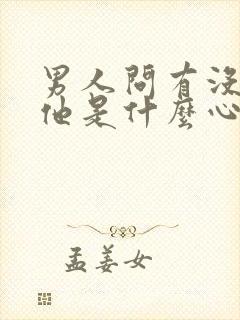 男人問有沒
他是什麼心
孟姜女